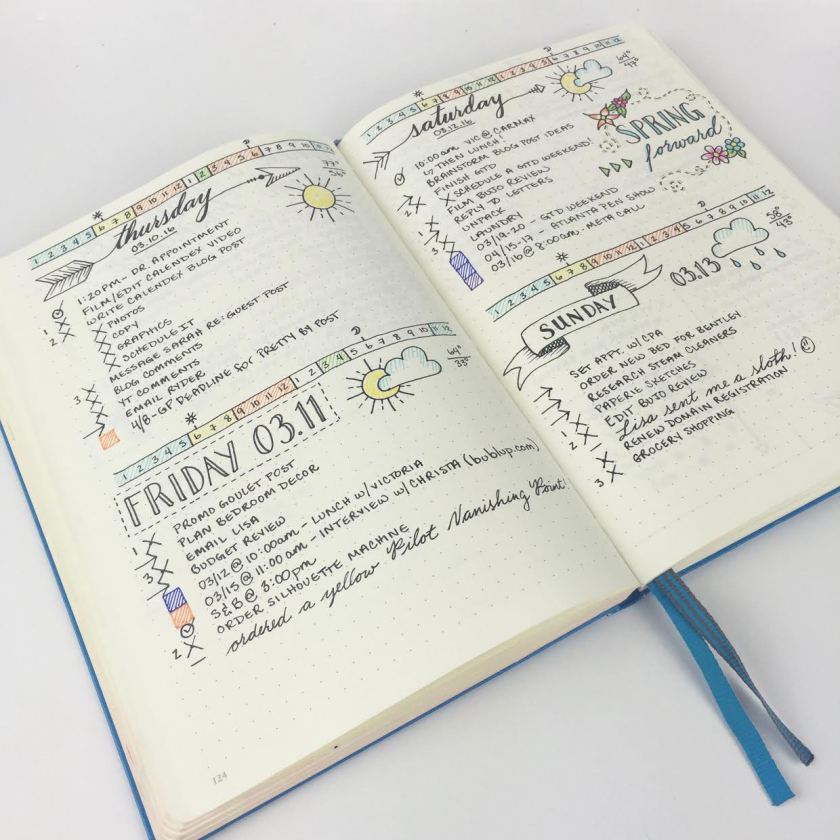 1 2 3 4 5 6 7 8 9 10 11 12 1 2 3 4 5 6 7 8 9 10 11 12
thursday
03.10.16
77°
56°
1:20PM - DR. APPOINTMENT
1 FILM/EDIT CALENDEX VIDEO
2 WRITE CALENDEX BLOG POST
PHOTOS
COPY
GRAPHICS
SCHEDULE IT
MESSAGE SARAH RE: GUEST POST
3 BLOG COMMENTS
YT COMMENTS
EMAIL RYDER
4/8 - GP DEADLINE for PRETTY BY POST
D
1 2 3 4 5 6 7 8 9 10 11 12 1 2 3 4 5 6 7 8 9 10 11 12
FRIDAY 03.11
64°
1 PROMO GOULET POST
PLAN BEDROOM DECOR
3 EMAIL LISA
BUDGET REVIEW
03/12 @ 10:00am - LUNCH W/VICTORIA
03/15 @ 11:00am - INTERVIEW W/CHRISTA (bublup.com)
S&B @ 8:00pm
2 ORDER SILHOUETTE MACHINE
ordered a yellow Pilot Vanishing Point!
124
D
1 2 3 4 5 6 7 8 9 10 11 12 1 2 3 4 5 6 7 8 9 10 11 12
saturday
03.12.16
64°
47°
SPRING
forward
10:00am VIC @ CARMAX
↳ THEN LUNCH!
BRAINSTORM BLOG POST IDEAS
2 FINISH GTD
SCHEDULE A GTD WEEKEND!
1 FILM BUJO REVIEW
REPLY TO LETTERS
UNPACK
LAUNDRY
03/19-20 - GTD WEEKEND
04/15-17 - ATLANTA PEN SHOW
03/16 @ 8:00am - META CALL
D
1 2 3 4 5 6 7 8 9 10 11 12 1 2 3 4 5 6 7 8 9 10 11 12
SUNDAY
03.13
58°
43°
SET APPT. W/CPA
ORDER NEW BED FOR BENTLEY
RESEARCH STEAM CLEANERS
1 PAPERIE SKETCHES
2 EDIT BUJO REVIEW
Lisa sent me a sloth!
RENEW DOMAIN REGISTRATION
3 GROCERY SHOPPING